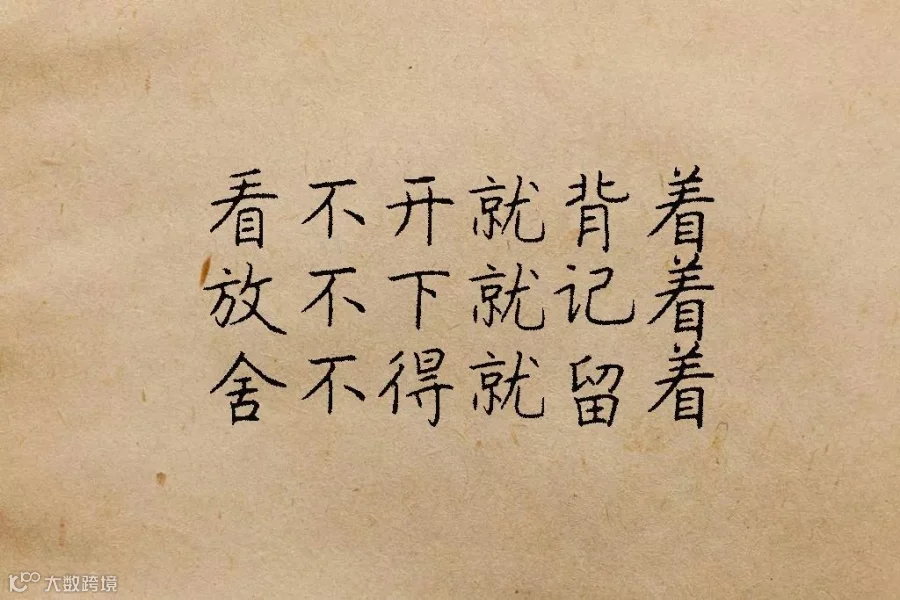 看不开就背着
放不下就记着
舍不得就留着
大数跨境